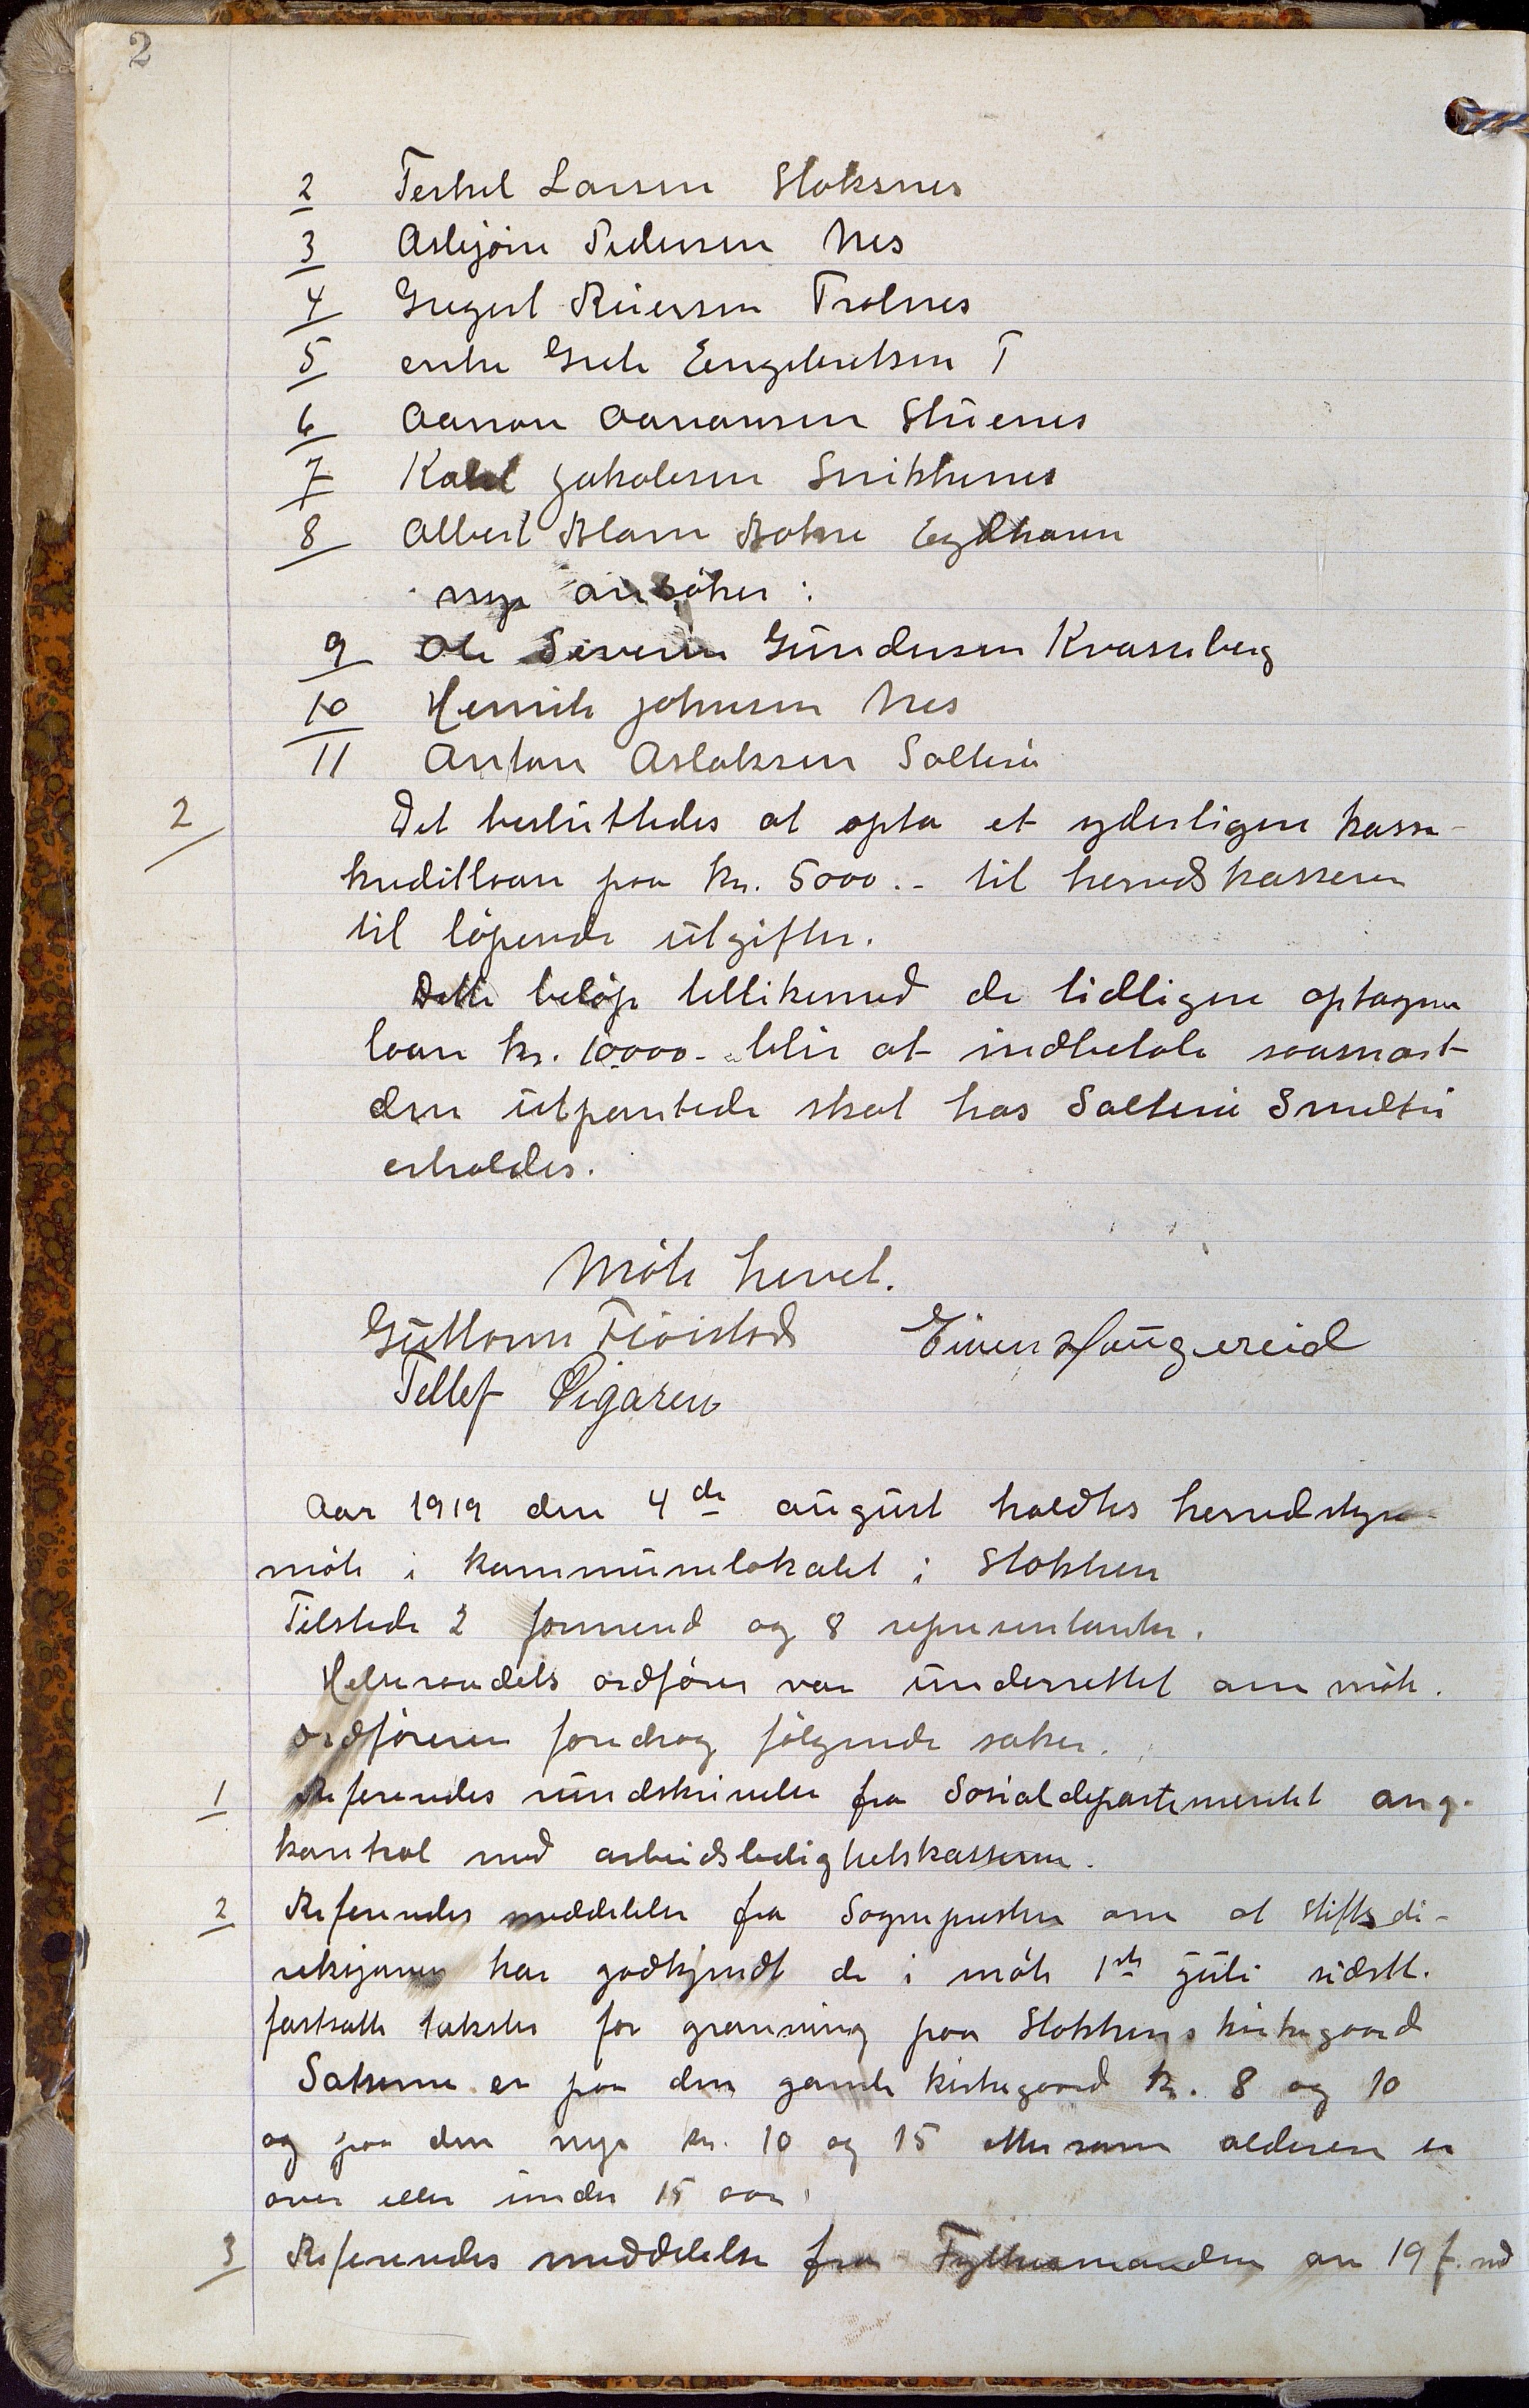 2
2 Terkel Larsen Stoksnes
3 Asbjørn Pedersen Nes
4 Gregert Reiersen Trolnes
5 enke Grete Engebretsen T
6 Aanon Aanonsen Stuenes
7 Kalel Jakobsen Snikkenes
8 Albert Blom Bohne Eydhavn
nye ansöker:
9 Ole Severin Gundersen Kvasseberg
10 Henrik Johnsen Nes
11 Anton Aslaksen Saltrø
2 Det besluttedes at opta et yderligere kasse-
kreditlaan paa kr. 5000.- til herredskasseren
til löpende utgifter.
Dette belöp tellikemed de tidligere optagne
laan kr. 10000.- blir at indbetale saasnart
den utpantede skat hos Saltrø Smelteri
erholdes.
Möte hevet.
Guttorm Fløistad Einer Haugereid
Tellef Øigaren
Aar 1919 den 4de august holdtes herredstyre
möte i kommunelokalet i Stokken
Tilstede 2 formend og 8 representanter.
Helseraadets ordförer var underrettet om möte.
Ordföreren foredrog fölgende saker.
1 Referendes rundskrivelse fra Sosialdepartementet ang.
kontrol med arbeidsledighetskasserne.
2 Referendes meddelelse fra Sognepresten om at Stiftsdi-
reksjonen har godkjendt de i möte 1ste juli sidstl.
fastsatte takster for gravning paa Stokkens kirkegaard
Satserne er paa den gamle kirkegaard kr. 8 og 10
og paa den nye kr. 10 og 15 ettersom alderen er
over eller under 15 aar.
3 Referendes meddelelse fra Fylkesmanden av 19 f. md